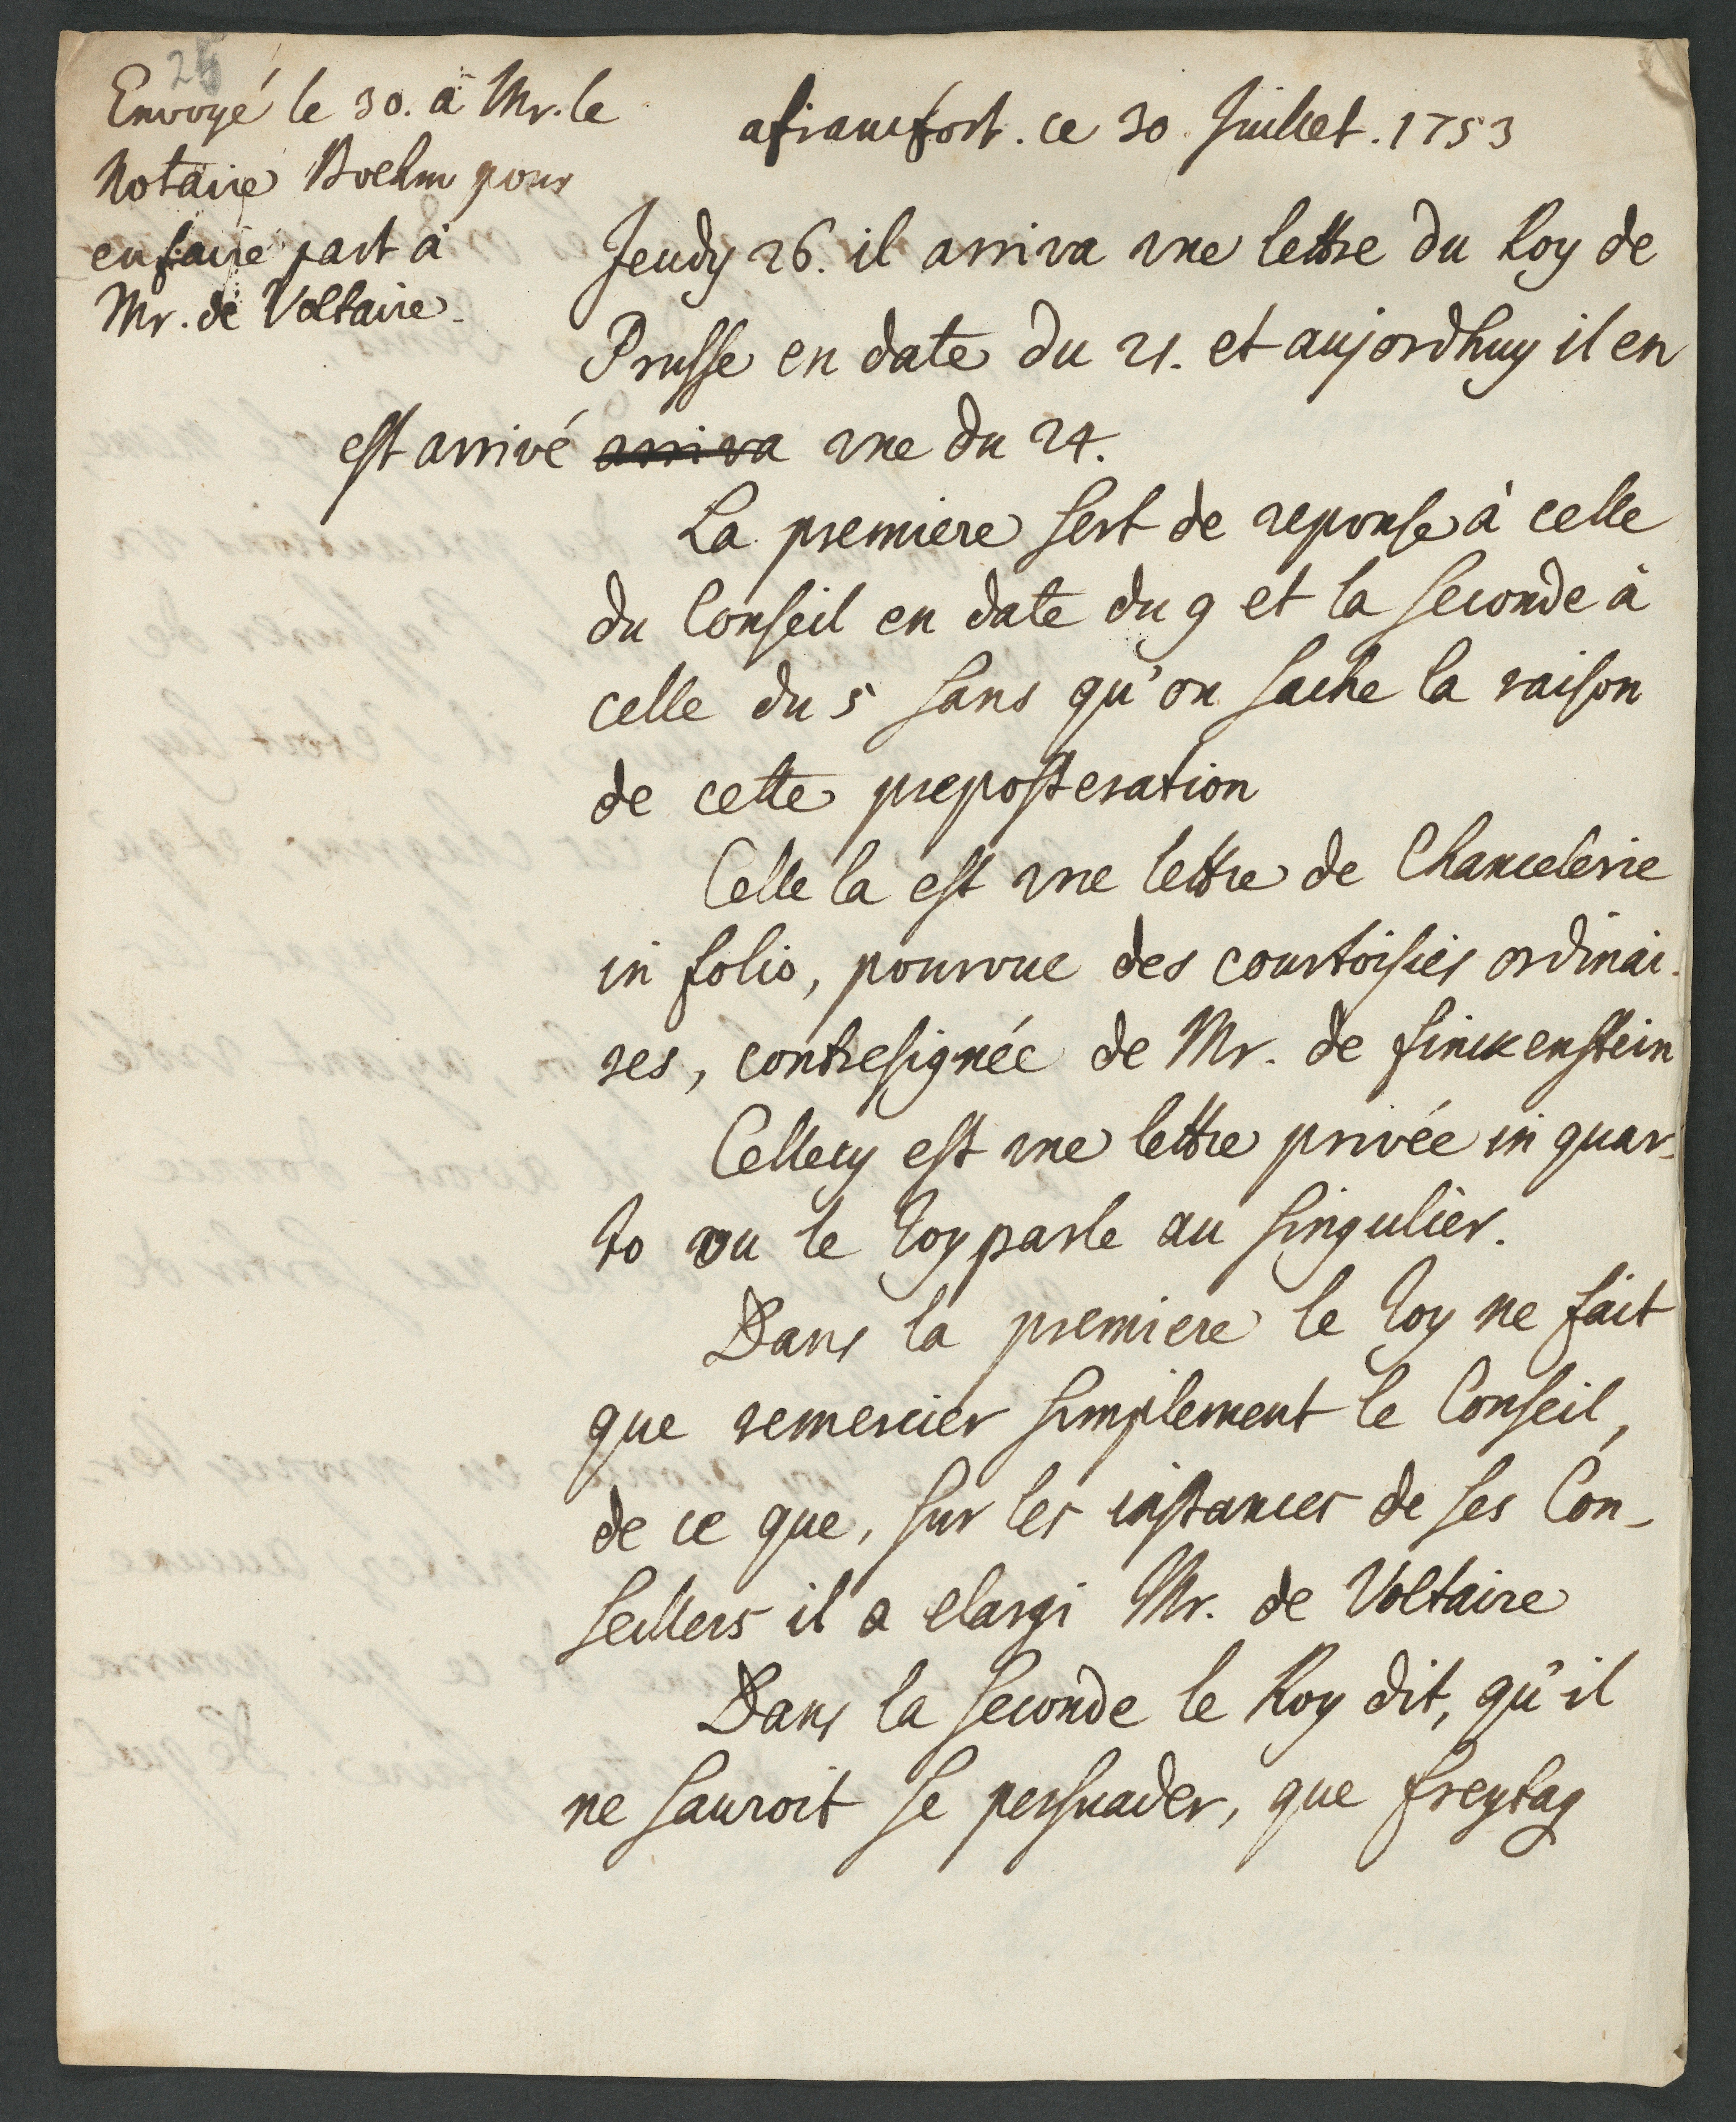 25
Envoyé le 30. a Mr. le
Notaire Boehm pour
en faire part à
Mr. de Voltaire.
a francfort. ce 30. Juillet. 1753
Jeudy 26. il arriva une lettre du Roy de
Prusse en date du 21. et aujordhuy il en
est arrivé arriva une du 24.
La premiere sert de reponse à celle
du Conseil en date du 9 et la seconde à
celle du 5 sans qu'on sache la raison
de cette preposteration
Celle la est une lettre de Chancelerie
in folio, pourvue des courtoisies ordinai-
res, contresignée de Mr. de finckenstein
Cellecy est une lettre privée in quar-
to ou le Roy parle au singulier.
Dans la premiere le Roy ne fait
que remercier simplement le Conseil,
de ce que, sur les instances de ses Con-
seillers il a elargi Mr. de Voltaire
Dans la seconde le Roy dit, qu'il
ne sauroit se persuader, que freytag